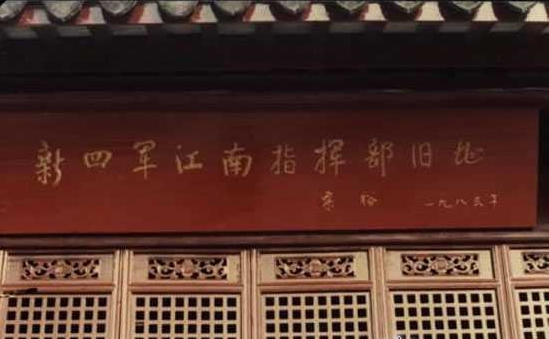 新四军江南指挥部旧址
粟裕 一九八三年